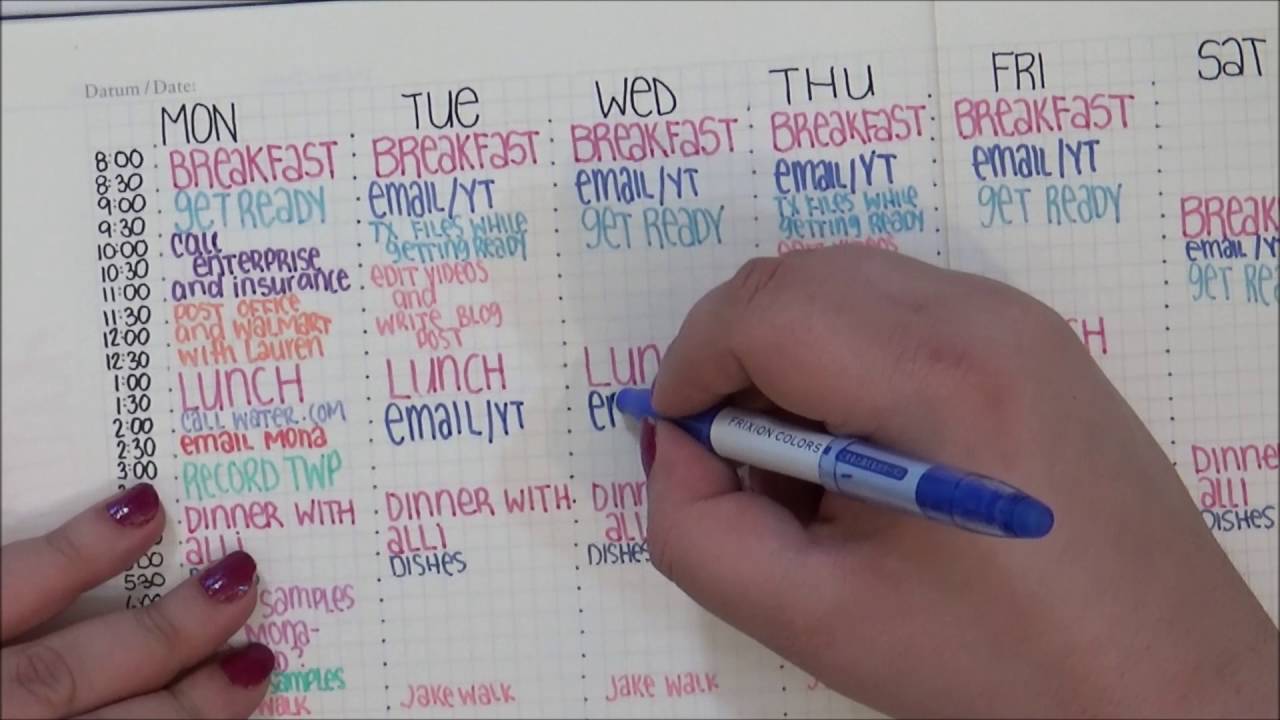 Datum / Date:
MON TUE WED THU FRI SAT
8:00 BREAKFAST BREAKFAST BREAKFAST BREAKFAST BREAKFAST
8:30 GET READY EMAIL/YT EMAIL/YT EMAIL/YT EMAIL/YT
9:00 TX FILES WHILE GET READY TX FILES WHILE GET READY BREAK
9:30 CALL GETTING READY GETTING READY EMAIL/Y
10:00 ENTERPRISE EDIT VIDEOS GET RE
10:30 AND INSURANCE AND
11:00 POST OFFICE WRITE BLOG
11:30 AND WALMART POST
12:00 WITH LAUREN
12:30 LUNCH LUNCH LUN CH
1:00 CALL WATER.COM EMAIL/YT EM
1:30 EMAIL MONA
2:00 RECORD TWP
2:30 DINNER WITH DINNER WITH DINN DINNE
3:00 ALLI ALLI ALL ALLI
DISHES DISHES DISHES
5:30
SAMPLES
MONA-
SAMPLES
WALK JAKE WALK JAKE WALK
FRIXION COLORS